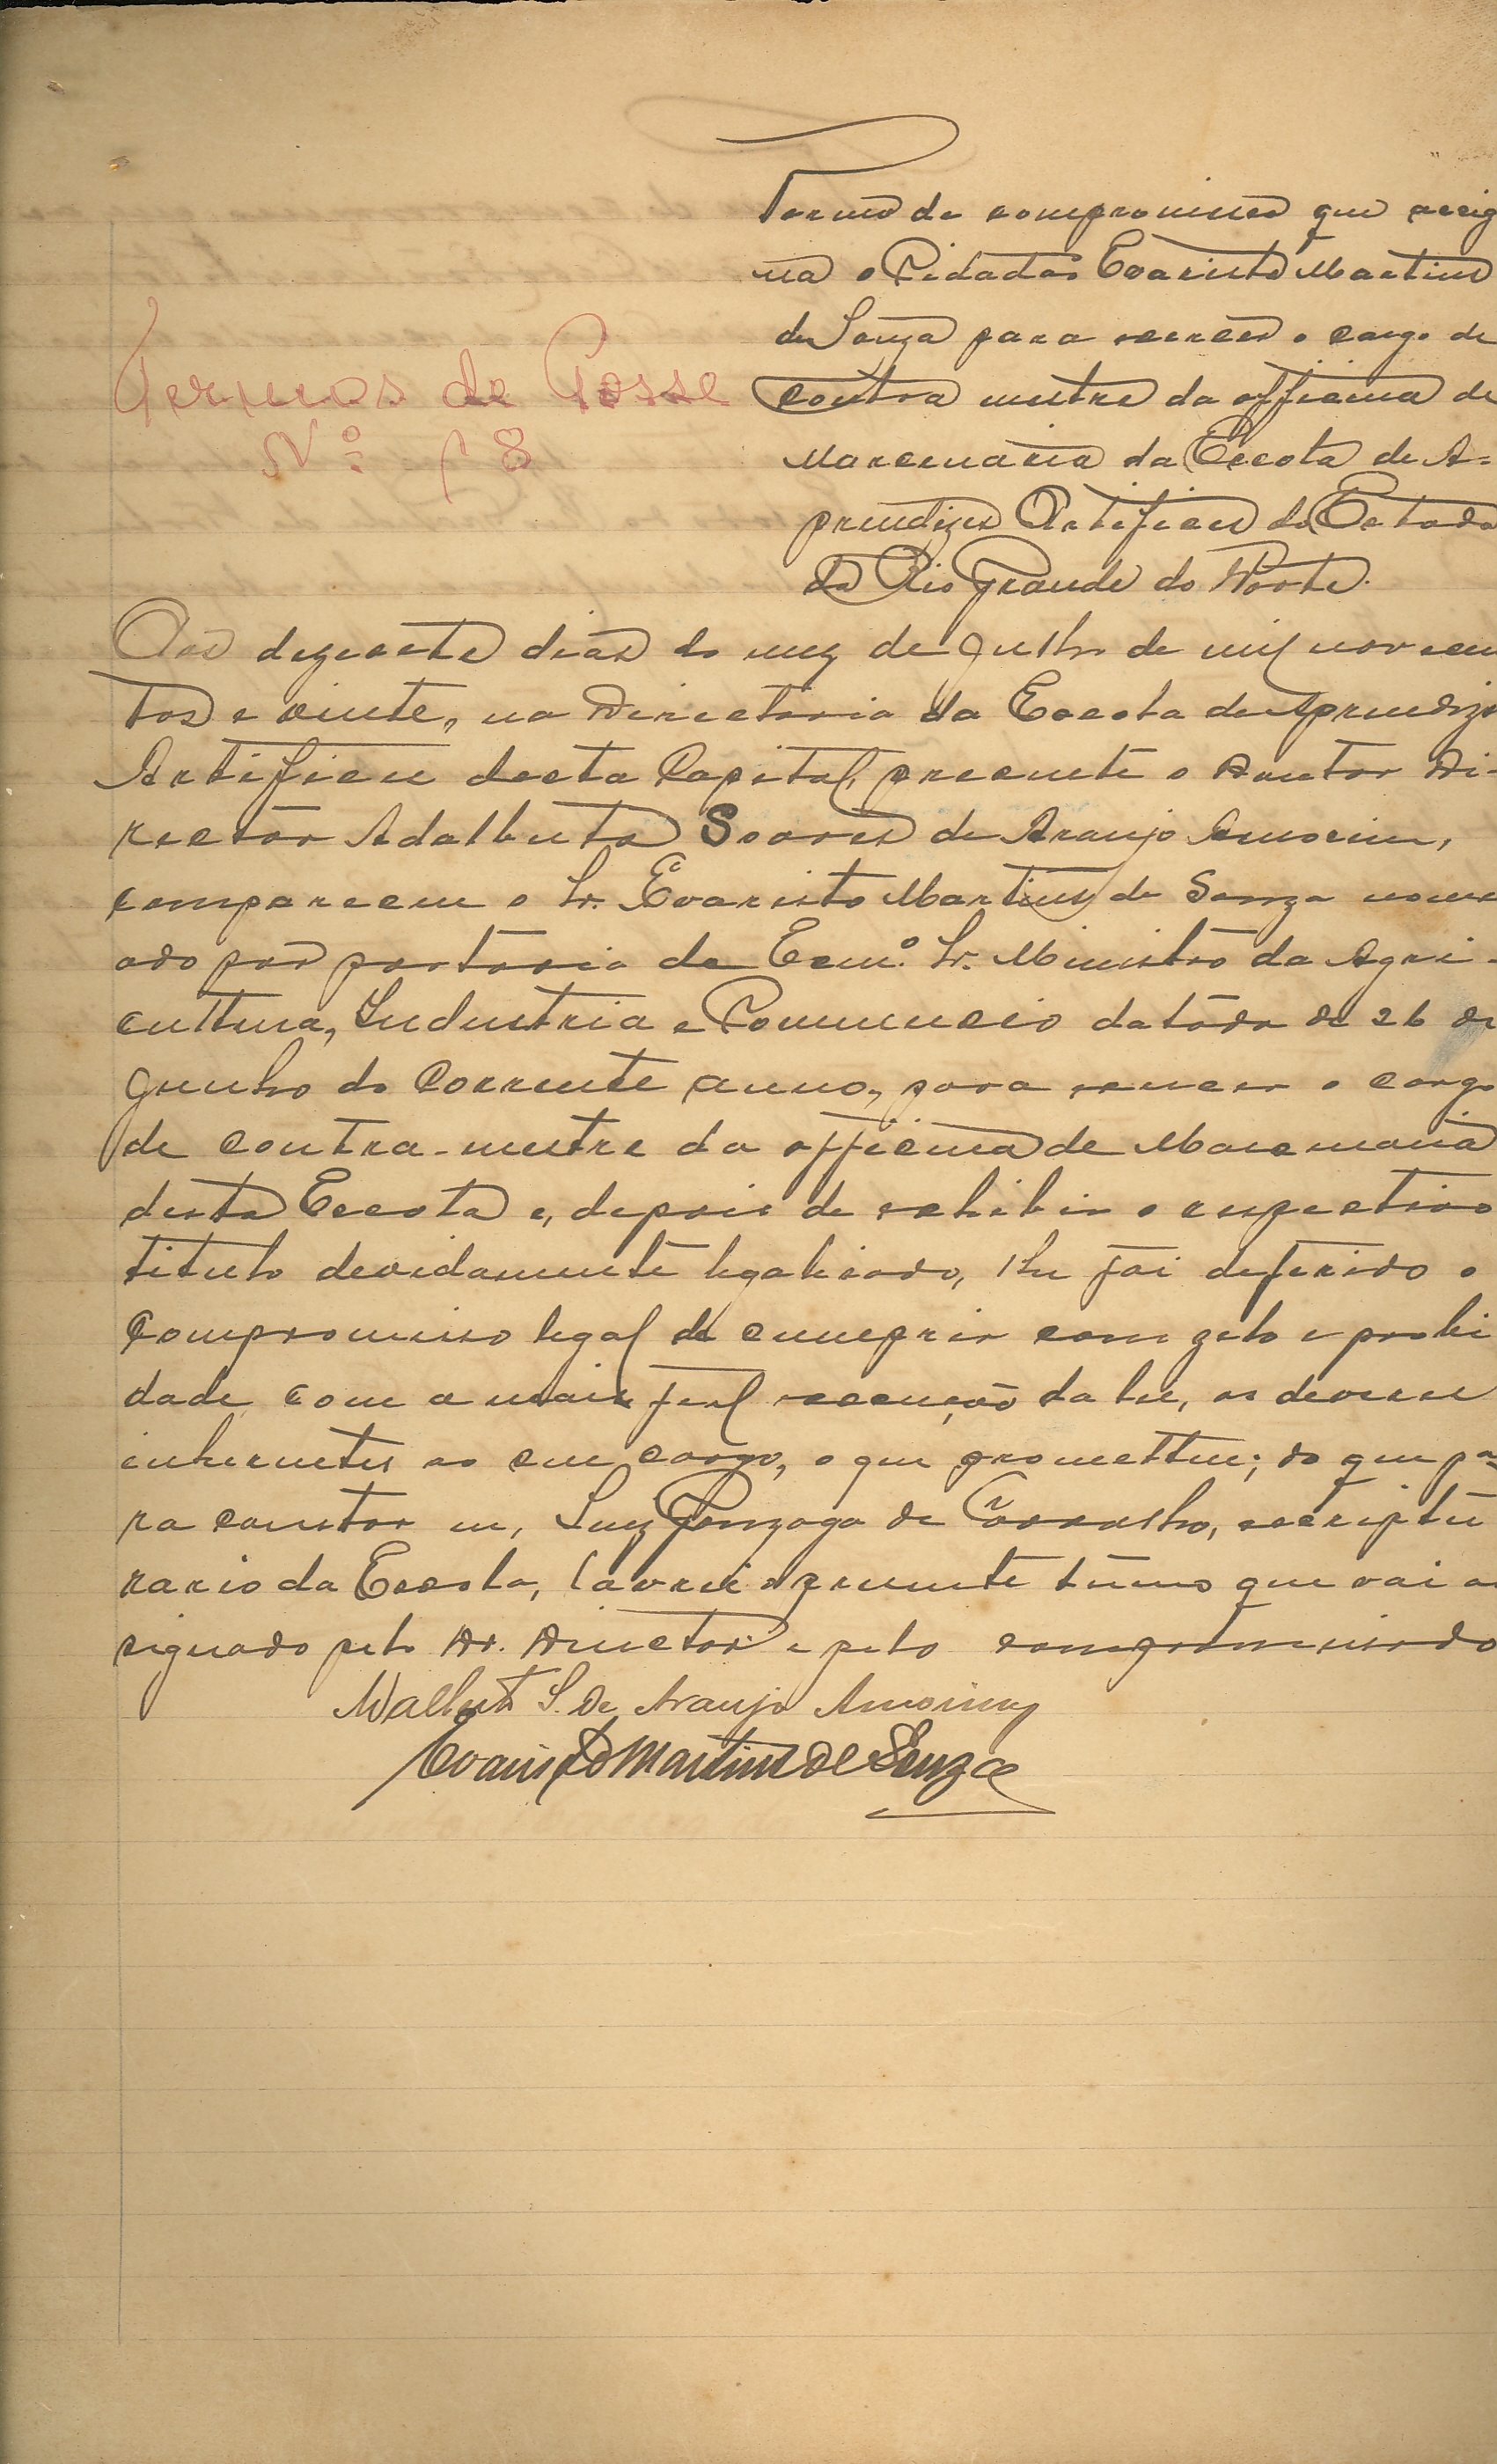 Termo de compromisso que assig
na o Cidadão Evaristo Martins
de Souza para exercer o cargo de
contra mestre da officina de
Marcenaria da Escola de A-
prendizes Artifices do Estado
do Rio Grande do Norte.
Termos de Posse
Nº 18
Aos dezesete dias do mez de Julho de mil novecen
tos e vinte, na Directoria da Escola de Aprendizes
Artifices desta Capital, presente o Doutor Di-
rector Adalberto Soares de Araujo Amorim,
compareceu o Sr. Evaristo Martins de Souza nome
ado por portaria do Exmº. Sr. Ministro da Agri-
cultura, Industria e Commercio datada de 26 de
Junho do corrente anno, para exercer o cargo
de contra-mestre da officina de Marcenaria
desta Escola e, depois de exhibir o respectivo
titulo devidamente legalisado, lhe foi deferido o
compromisso legal de cumprir com zelo e probi
dade, com a mais fiel execução da lei, os deveres
inherentes ao seu cargo, o que prometteu; do que pa-
ra constar eu, Luiz Gonzaga de Carvalho, escriptu
rario da Escola, lavrei o presente termo que vai as
signado pelo Dr. Director e pelo compromissado
Adalberto S. de Araujo Amorim
Evaristo Martins de Souza